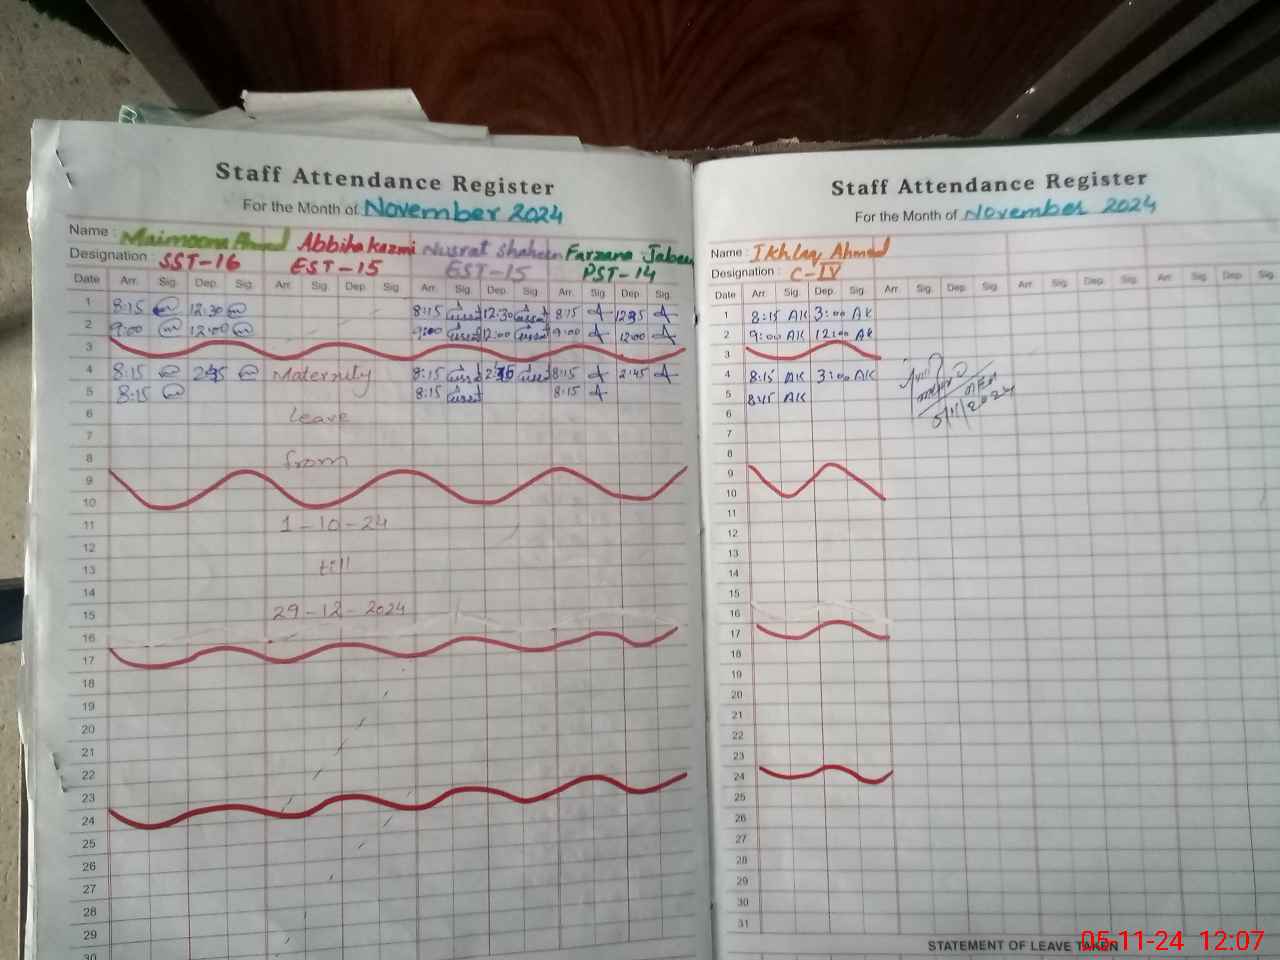 Staff Attendance Register
For the Month of November 2024
Name : Maimoona Ahmad Abbiha kazmi Nusrat Shaheen Farzana Jabeen
Designation : SST-16 EST-15 EST-15 PST-14
Date Arr. Sig. Dep. Sig. Arr. Sig. Dep. Sig. Arr. Sig. Dep. Sig. Arr. Sig. Dep. Sig.
1 8:15 12:30 8:15 12:30 8:15 1235
2 9:00 12:00 9:00 12:00 9:00 12:00
3
4 8:15 Maternity 8:15 8:15 2:45
5 8:15 8:15 8:15
6 Leave
7
8 from
9
10
11 1-10-24
12
13 till
14
15 29-12-2024
16
17
18
19
20
21
22
23
24
25
26
27
28
29
30
Staff Attendance Register
For the Month of November 2024
Name : Ikhlaq Ahmad
Designation : C-IV
Date Arr. Sig. Dep. Sig. Arr. Sig. Dep. Sig. Arr. Sig. Dep. Sig. Arr. Sig. Dep. Sig.
1 8:15 AK 3:00 AK
2 9:00 AK 12:00 AK
3
4 8:15 AK 3:00 AK
5 8:15 AK
6 5/11/2024
7
8
9
10
11
12
13
14
15
16
17
18
19
20
21
22
23
24
25
26
27
28
29
30
31
STATEMENT OF LEAVE TAKEN
05-11-24 12:07